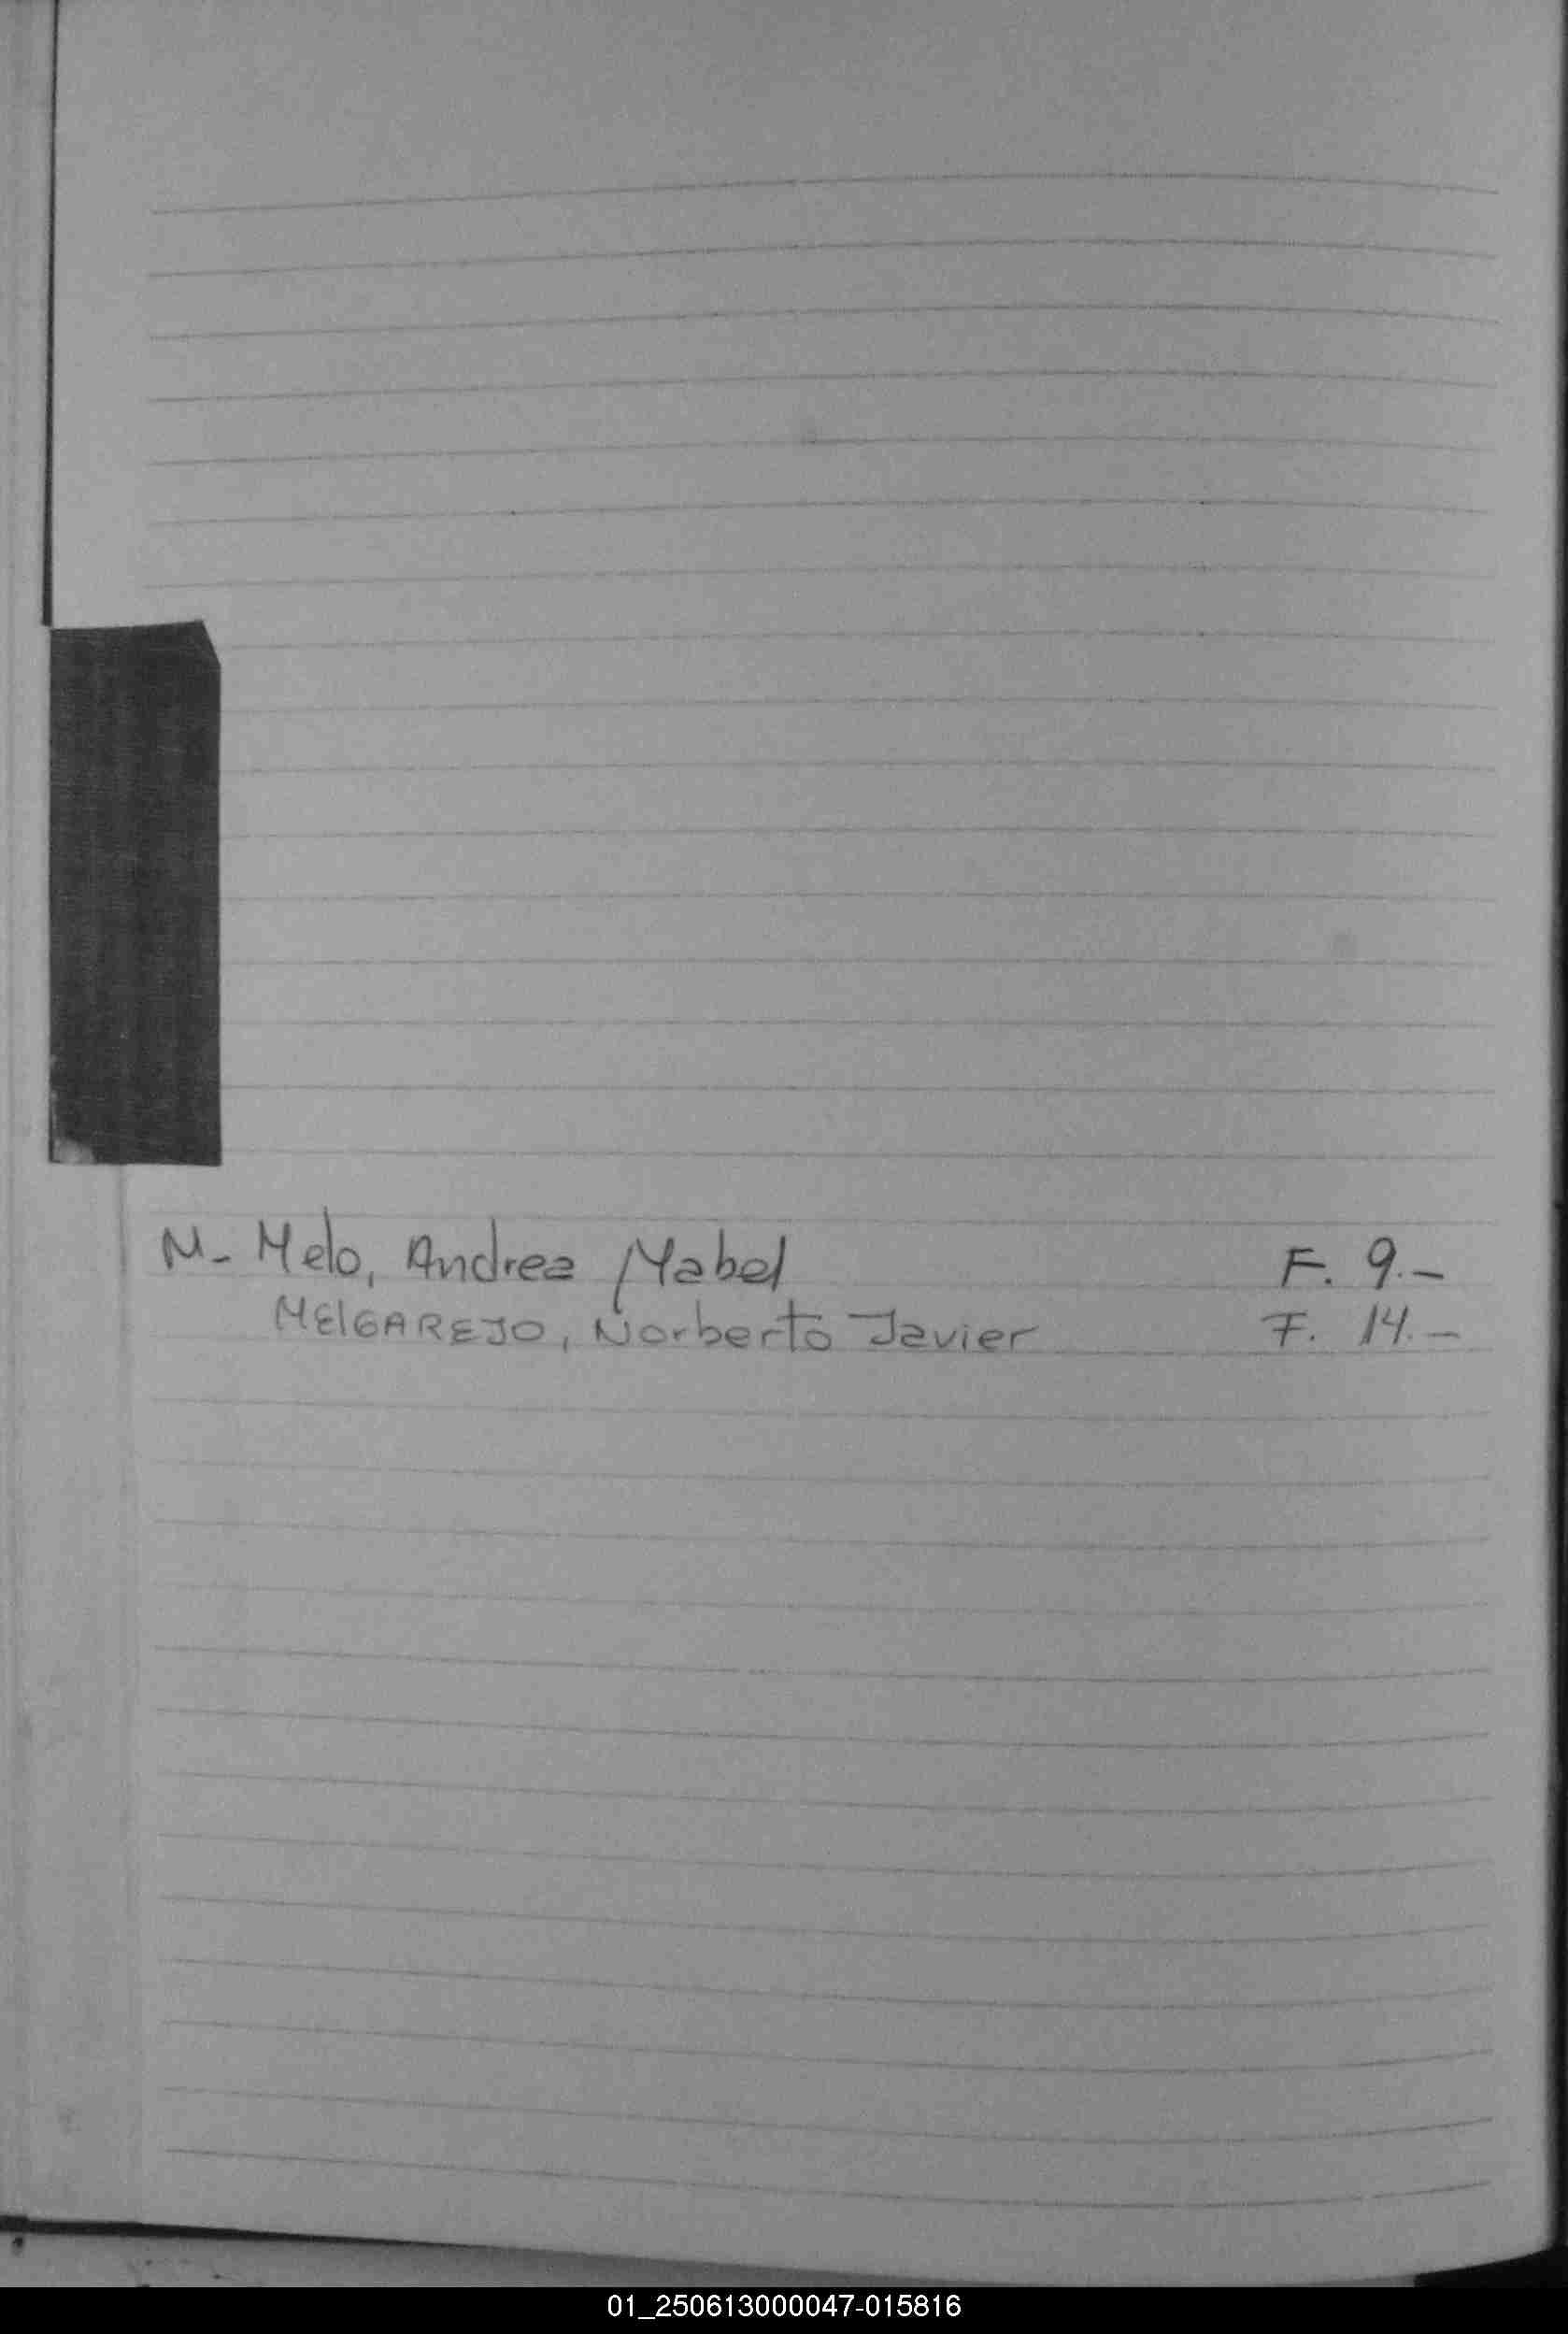 M- Melo, Andrea Mabel F. 9.-
MElGAREJO, Norberto Javier F. 14.-
01_250613000047-015816